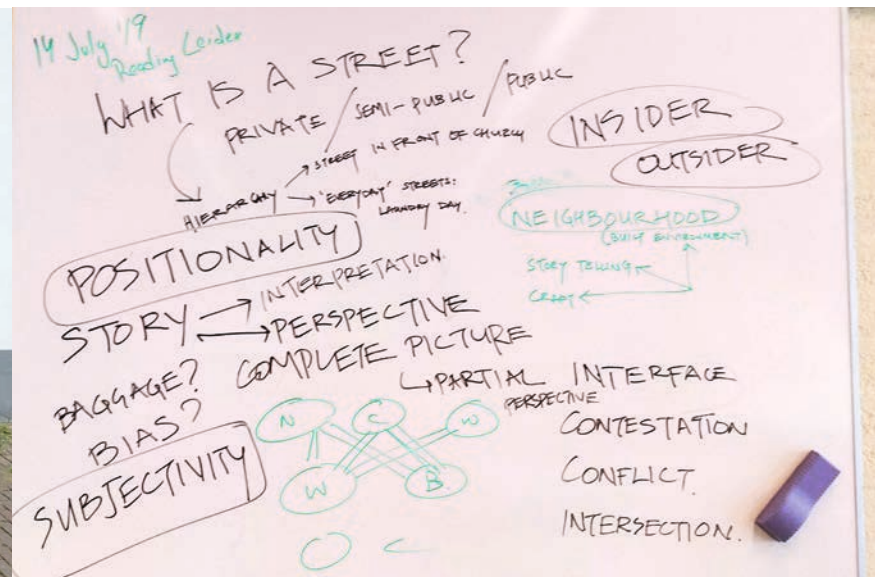 14 July '19
Reading Leiden
WHAT IS A STREET?
PRIVATE / SEMI-PUBLIC / PUBLIC
HIERARCHY
STREET IN FRONT OF CHURCH
"EVERYDAY" STREETS:
LAUNDRY DAY.
INSIDER
OUTSIDER
NEIGHBOURHOOD
(BUILT ENVIRONMENT)
STORY TELLING
CRAFT
POSITIONALITY
STORY
INTERPRETATION.
PERSPECTIVE
BAGGAGE?
BIAS?
COMPLETE PICTURE
PARTIAL
PERSPECTIVE
SUBJECTIVITY
N C W
W B
INTERFACE
CONTESTATION
CONFLICT.
INTERSECTION.